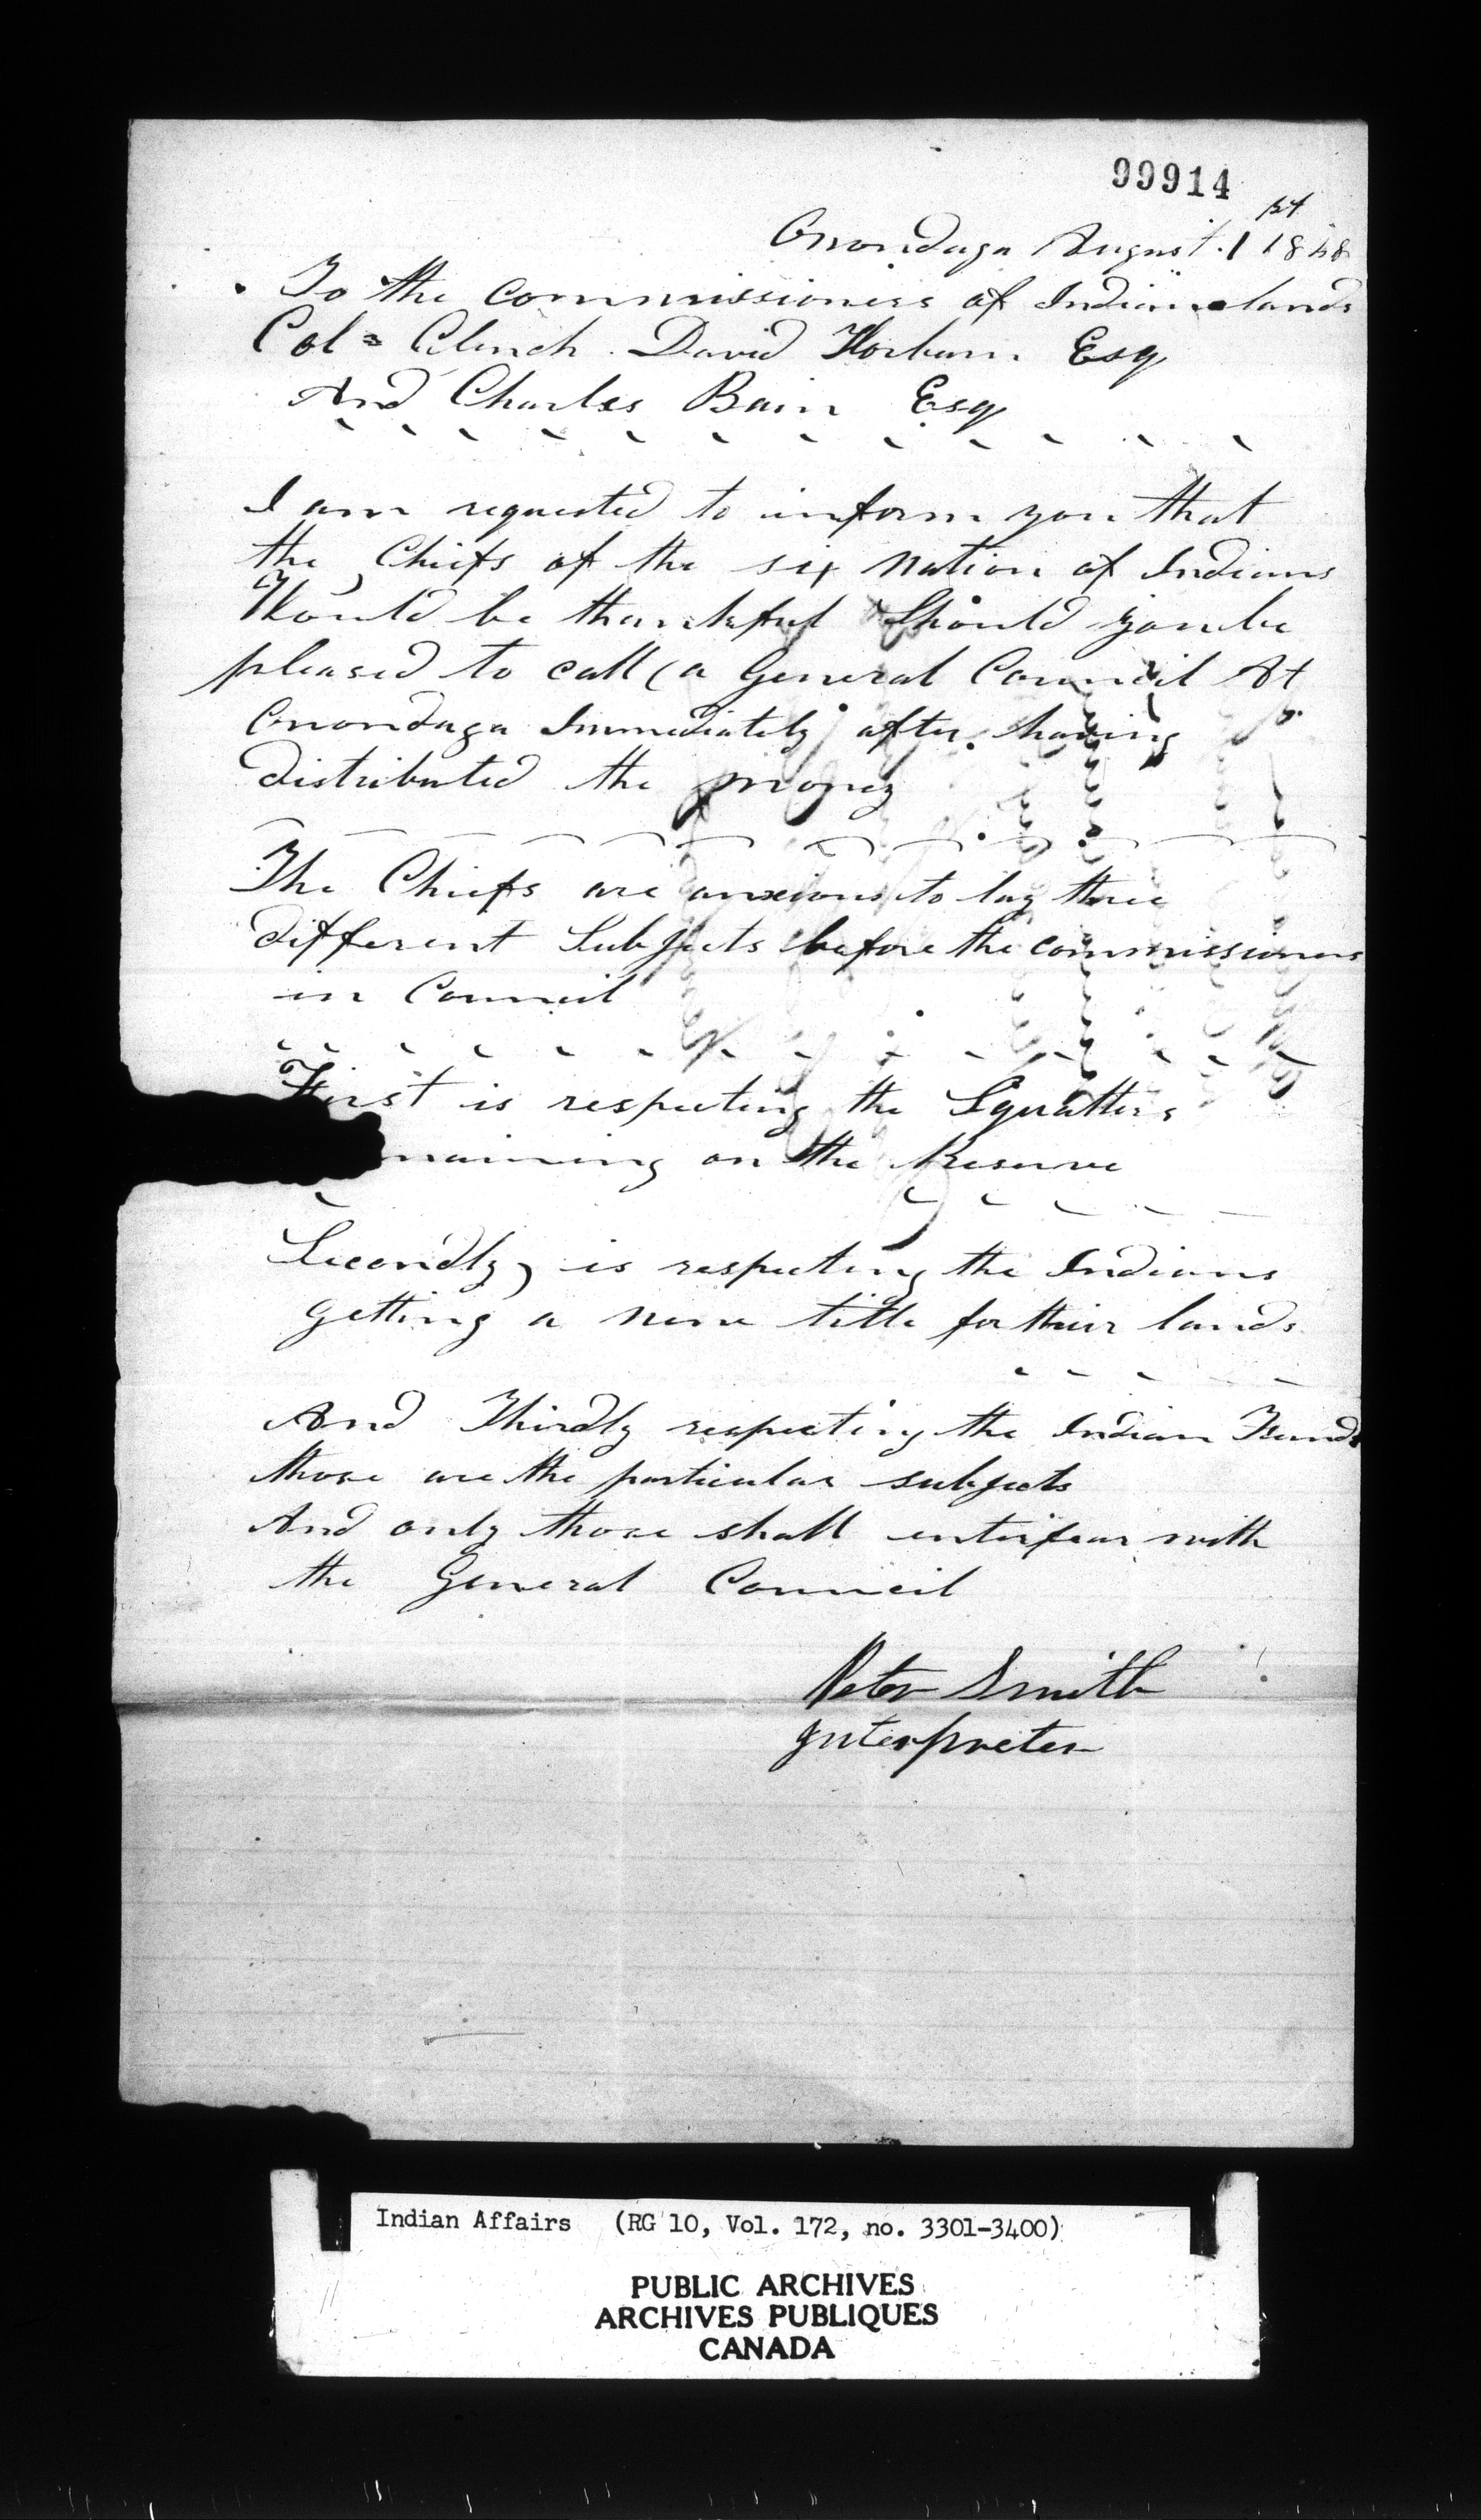 99914
Onondaga August 1st 1848
To the Commissioners of Indian lands
Col= Clench. David Thorburn Esq
And Charles Bain Esq
I am requested to inform you that
the Chiefs of the six Nation of Indians
Would be thankful Should you be
pleased to call a General Council At
Onondaga Immediately after having
distributed the money
The Chiefs are anxious to lay three
different Subjects before the commissioners
in Council
First is respecting the Squatters
maining on the Reserve
Secondly, is respecting the Indians
getting a new title for their lands
And Thirdly respecting the Indian Funds
those are the particular subjects
And only those shall enterfear with
the General Council
Peter Smith
Interpreter
Indian Affairs (RG 10, Vol. 172, no. 3301-3400)
PUBLIC ARCHIVES
ARCHIVES PUBLIQUES
CANADA